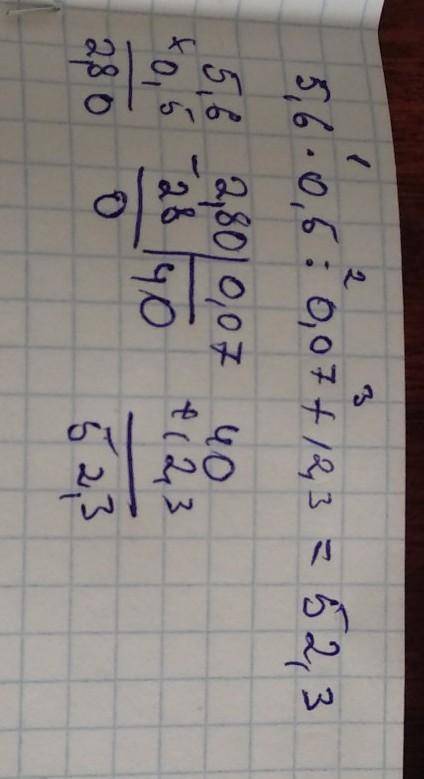 1 2 3
5,6 · 0,5 : 0,07 + 12,3 = 52,3
5,6
× 0,5
2,80
2,80 | 0,07
- 28 | 40
0
40
+ 12,3
52,3